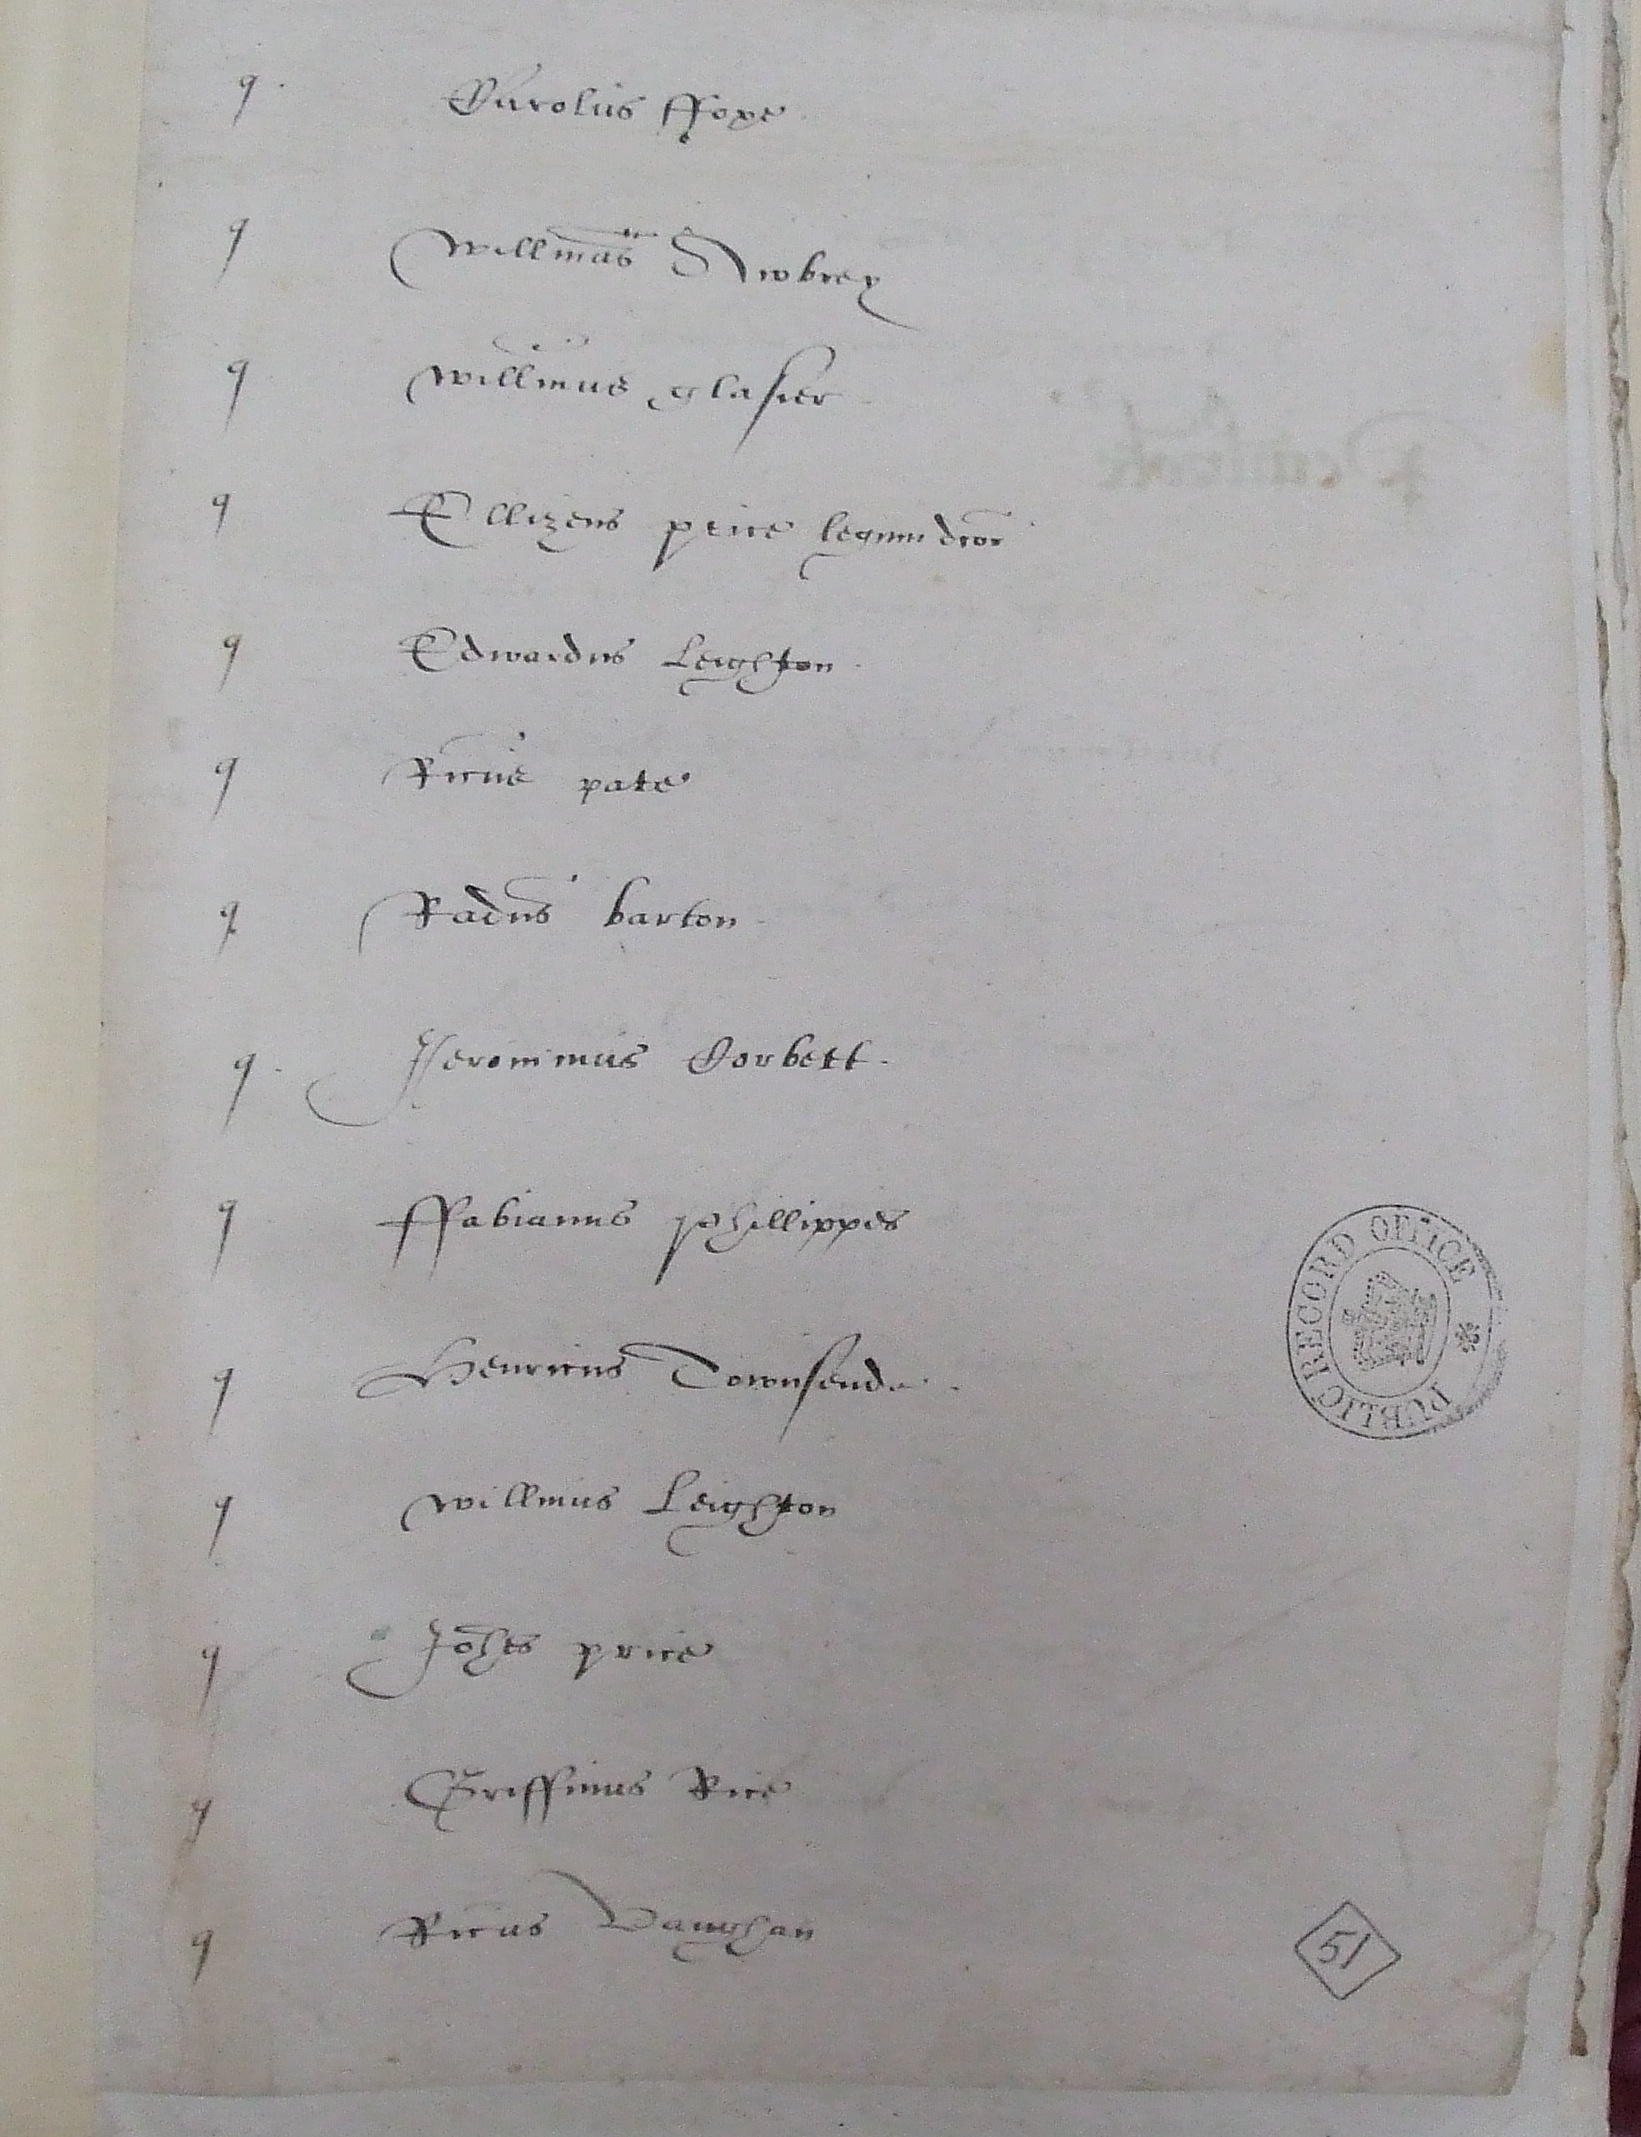 q. Carolus ffoxe
q Willmus Awbrey
q Willmus glasier
q Ellizeus price legum dcor
q Edwardus Leighton
q Ricus pate
q Radus barton
q. Jeronimus Corbett.
q ffabianus Phillippes
q Henricus Townsende
q Willmus Leighton
q Johes price
q Griffinus Rice
q Ricus Vaughan
PUBLIC RECORD OFFICE
51